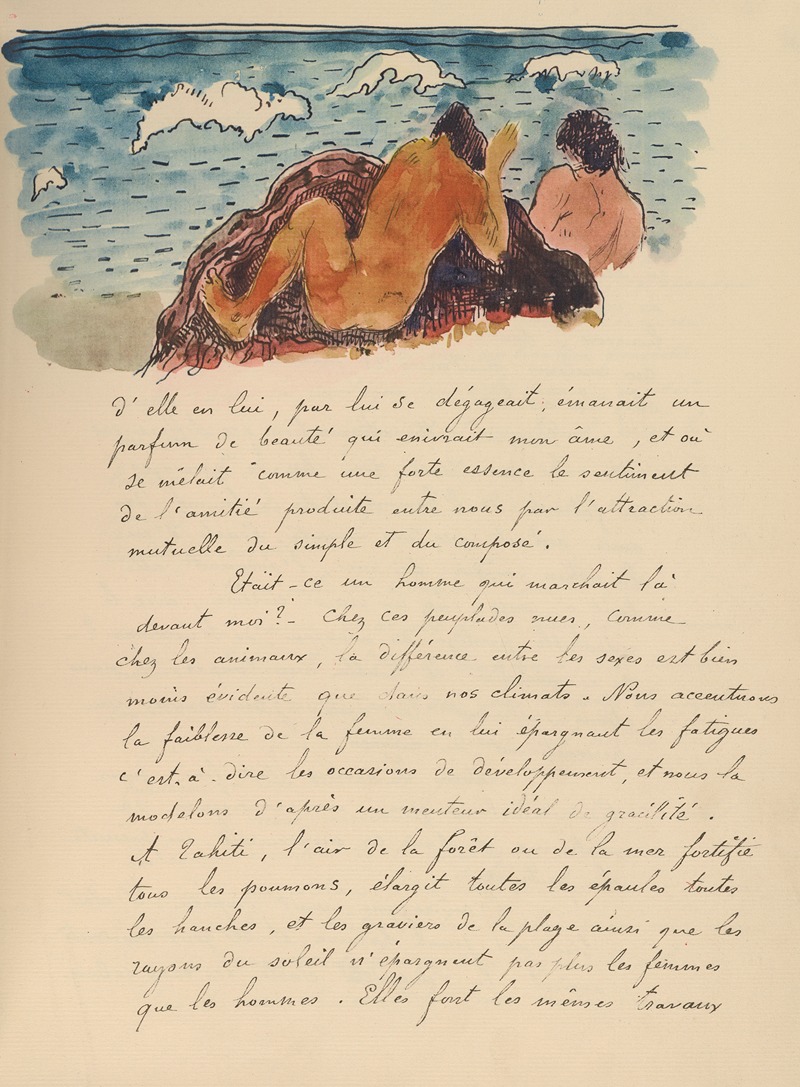 d'elle en lui, par lui se dégageait, émanait un
parfum de beauté qui enivrait mon âme, et où
se mêlait comme une forte essence le sentiment
de l'amitié produite entre nous par l'attraction
mutuelle du simple et du composé.
Était-ce un homme qui marchait là
devant moi? - Chez ces peuplades nues, comme
chez les animaux, la différence entre les sexes est bien
moins évidente que dans nos climats. Nous accentuons
la faiblesse de la femme en lui épargnant les fatigues
c'est-à-dire les occasions de développement, et nous la
modelons d'après un menteur idéal de gracilité.
A Tahiti, l'air de la forêt ou de la mer fortifie
tous les poumons, élargit toutes les épaules toutes
les hanches, et les graviers de la plage ainsi que les
rayons du soleil n'épargnent pas plus les femmes
que les hommes. Elles font les mêmes travaux